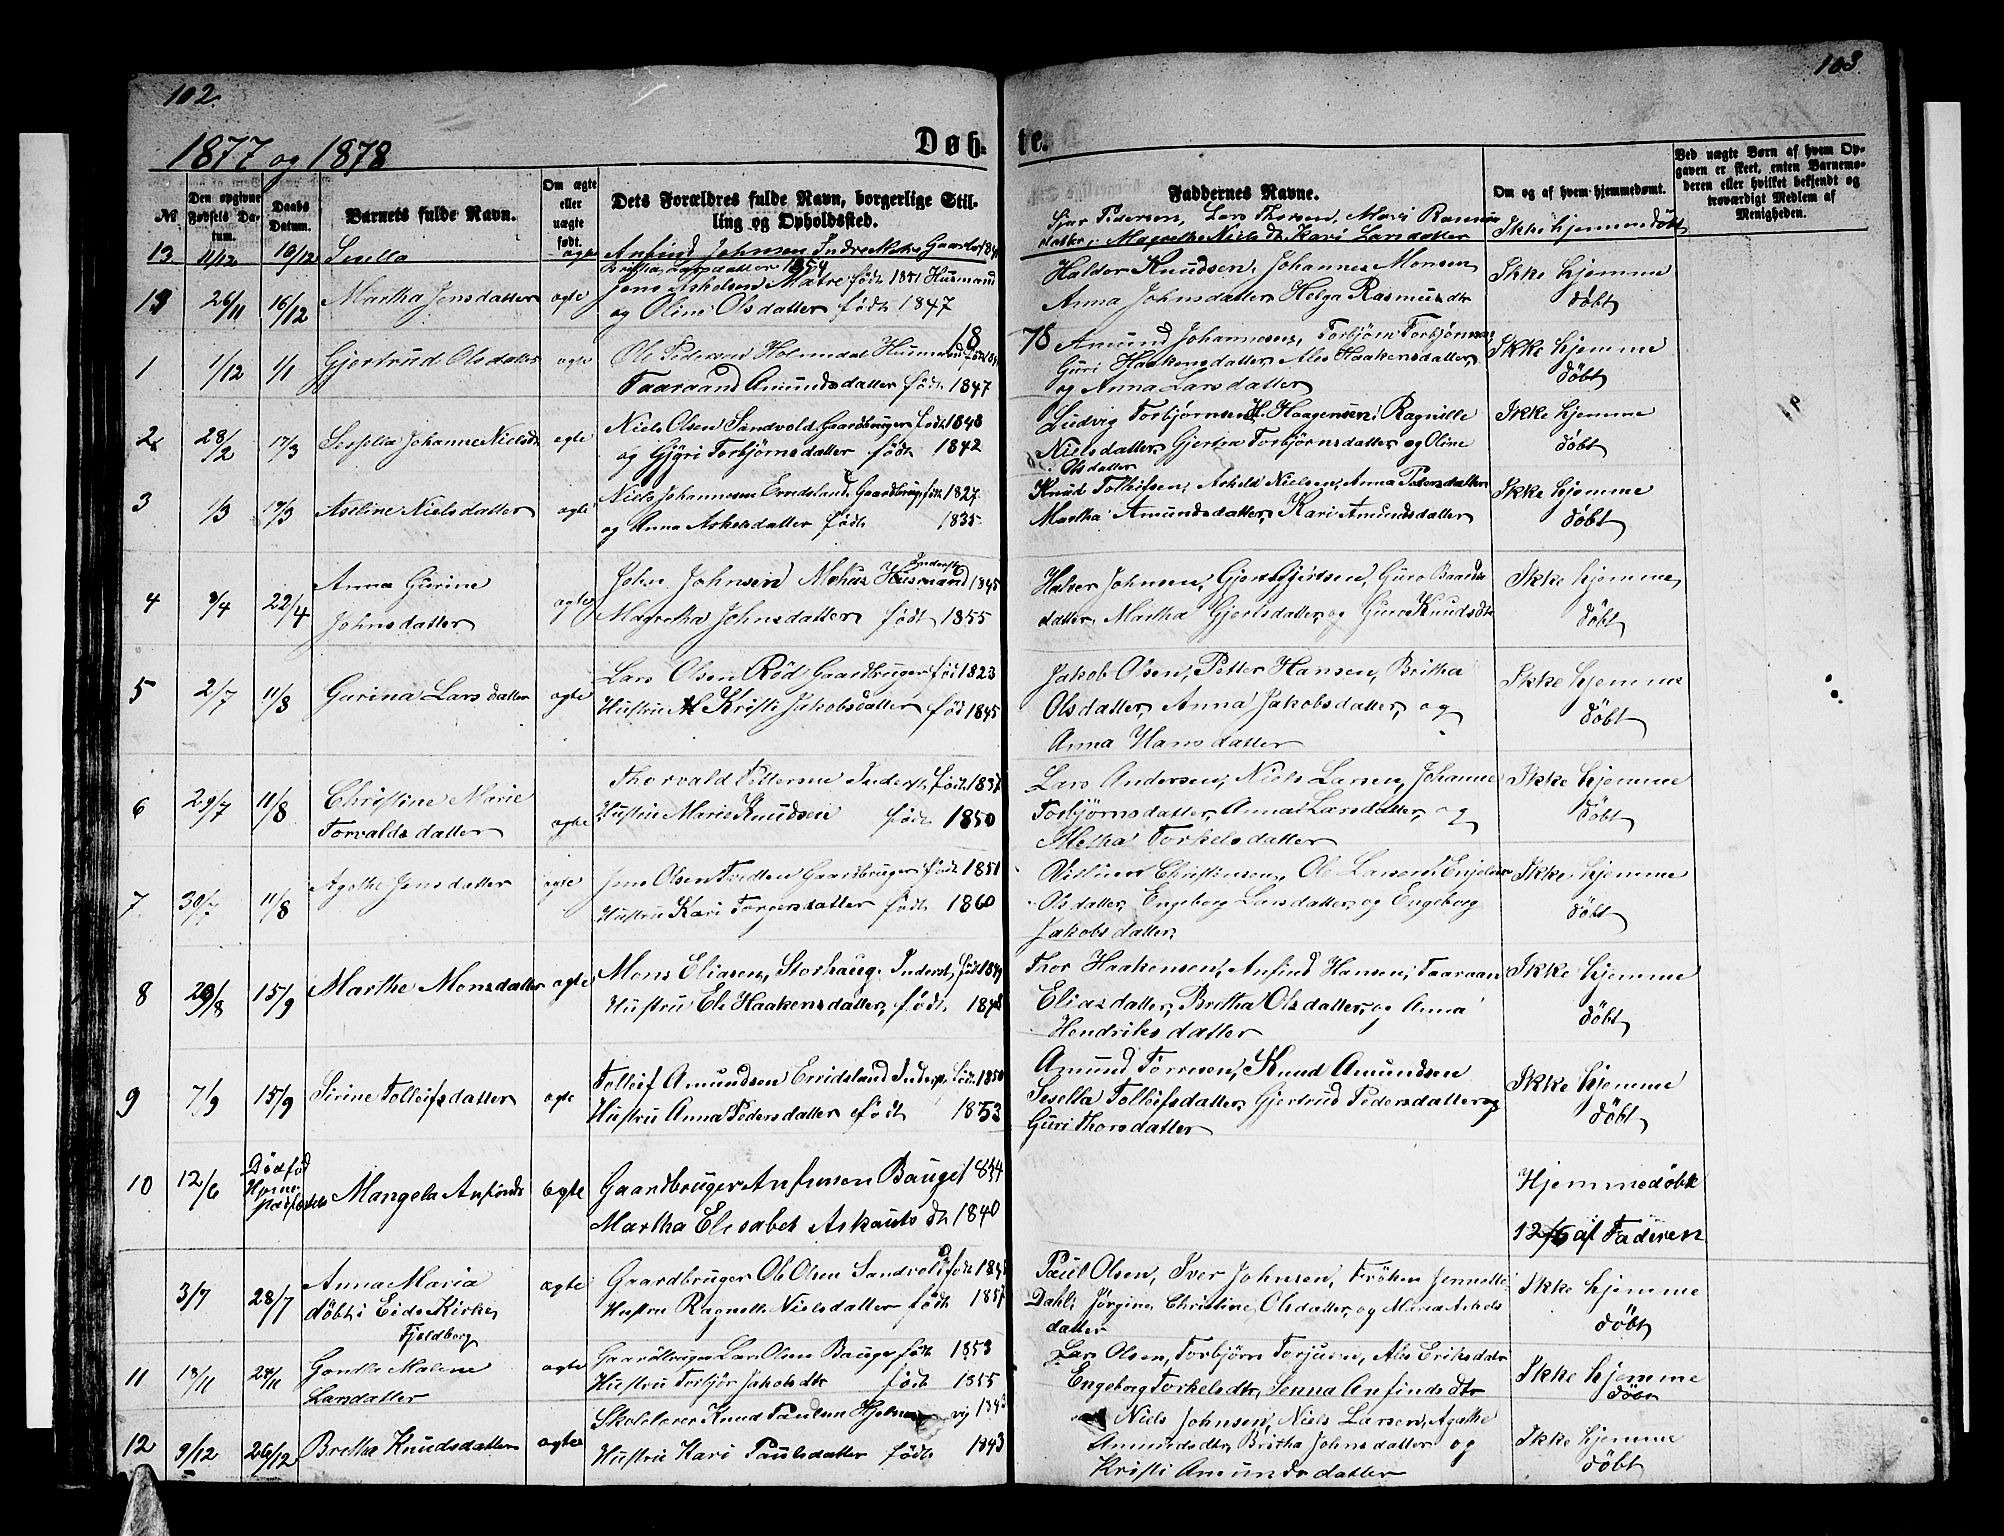 102.
103
1877 og 1878
Døb-
te.
No
Den opgivne Fødsels Datum.
Daabs Datum.
Barnets fulde Navn.
Om ægte eller uægte født.
Dets Forældres fulde Navn, borgerlige Stilling og Opholdssted.
Faddernes Navne.
Om og af hvem hjemmedøbt.
Ved uægte Børn af hvem Opgaven er skeet, enten Barnemoderen eller hvilket bekjendt og troværdigt Medlem af Menigheden.
13 11/12 16/12 Sesella ægte Anfind Johnsen Indre
Pedersen, Lars Thorsen, Mari
datter, Magrethe Niels dt Kari Larsdatter Ikke hjemmedøbt
13 26/11 16/12 Martha Jensdatter ægte
Matre født 1851 Husmand
og Oline Olsdatter født 1847
Haldor Knudsen, Johannes Monsen
Anna Johnsdatter, Helga Rasmusdt
Ikke hjemme
døbt
18
78
1 1/12 1/1 Gjertrud Olsdatter ægte Ole Pedersen Holmedal Husmand
Taaraand Amundsdatter født 1847
Amund Johannesen, Torbjørn Torbjørnsen,
Guri Haakensdatter, Ales Haakensdatter,
og Anna Larsdatter
Ikke hjemme
døbt
2 28/2 17/3 Sesselia Johanne Nielsdt ægte Niels Olsen Sandvold Gaardbruger født 1848
og Gjøri Torbjørnsdatter født 1842
Ludvig Torbjørnsen, H. Haagensen, Ragnille
Nielsdatter, Gjertra Torbjörnsdatter, og Oline
Olsdatter
Ikke hjemme
døbt
3 1/3 17/3 Aseline Nielsdatter ægte Niels Johannesen Erridsland, Gaardbrug, født 1827
og Anna Askelsdatter født 1835
Knud Tolleifsen, Askeld Nielsen, Anna Pedersdatter
Martha Amundsdatter, Kari Amundsdatter
Ikke hjemme
døbt
4 8/4 22/4 Anna Gurine
Johnsdatter
ægte John Johnsen Husmand 1845
Inderst
Magretha Johnsdatter født 1855
Halvor Johnsen, Gjert Gjertsen, Guro
datter, Martha Gjertsdatter, og Guro Knudsdtr
Ikke hjemme
døbt
5 2/7 11/8 Gurina Larsdatter ægte Lars Olsen Röd Gaardbruger født 1823
Hustru Kristi Jakobsdatter född 1845
Jakob Olsen, Petter Hansen, Britha
Olsdatter, Anna Jakobsdatter, og
Anna Hansdatter
Ikke hjemme
döbt
6 29/7 11/8 Christine Marie
Torvaldsdatter
ægte Thorvald Pettersen Inderst född 1837
Hustru Marie Knudsen født 1850
Lars Andersen, Niels Larsen, Johanne
Torbjörnsdatter, Anna Larsdatter, og
Metha Torkelsdatter
Ikke hjemme
döbt
7 30/7 11/8 Agethe Jensdatter ægte Jens Olsen Tvedten Gaardbruger född 1851
Hustru Kari Torgersdatter född 1860
Christensen, Ole Larsen
Olsdatter, Engeborg Larsdatter, og Engeborg
Jakobsdatter
Ikke hjemme
döbt
8 29/8 15/9 Marthe Monsdatter ægte Mons Eliasen, Storhaug. Inderst,
Hustru Eli Haakensdatter, født
Thor Haakensen, Anfind Hansen, Taaraan
Eliasdatter, Bretha Olsdatter, og Anna
Hendriksdatter
Ikke hjemme
döbt
9 7/9 15/9 Sirine Tolleifsdatter ægte Tolleif Amundsen Erridsland Inderst, født 1850
Hustru Anna Pedersdatter født 1853
Amund Törresen, Knud Amundsen
Sesella Tolleifsdatter, Gjertrud Pedersdatter og
Guri Thorsdatter
Ikke hjemme
döbt
10 12/6 Dödfød
Mangela Anfinds
ægte Gaardbruger Anfinsen Bauge
Martha Elesabet Askauts dt 1840
Hjemmedøbt
12/6 af Faderen
3/7 28/7 Anna Maria
døbt i Eids Kirke,
Fjeldberg
ægte Gaardbruger Ole Olsen Sandvold født
Hustru Ragnelle Nielsdatter født 1857
Paul Olsen, Iver Johnsen, Frøken Jennette
Dahl, Jørgine Christine Olsdatter, og Maria Askels
datter
Ikke hjemme
døbt
11 13/11 24/11 Gondla Malene
Larsdatter
ægte Gaardbruger Lars Olsen Bauge født 1853
Hustru Torbjør Jakobsdtr født 1855
Lars Olsen, Torbjörn Torjusen, Ales Eriksdatr
Engeborg Torkelsdtr, Senna Anfindsdtr
Ikke hjemme
döbt
12 9/12 26/12 Bretha Knudsdatter ægte Skolelærer Knud Paulsen
Hustru Kari Paulsdatter født 1843
Niels Johnsen, Niels Larsen, Agathe
Amundsdtr, Britha Johnsdatter og
Kristi Amundsdatter
Ikke hjemme
döbt